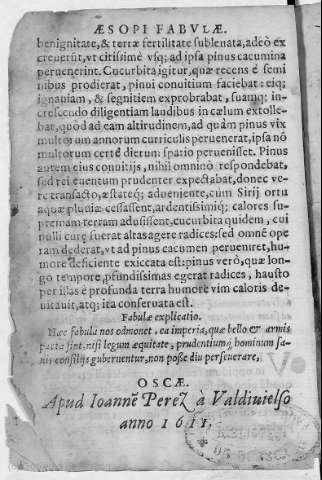 ÆSOPI FABVLÆ.
benignitate, & terræ fertilitate subleuata, adeò ex
creuerūt, vt citissimè vsq; ad ipsa pinus cacumina
peruenerint. Cucurbita igitur, quæ recens è semi
nibus prodierat, pinui conuitium faciebat: eiq;
ignauiam, & segnitiem exprobrabat, suamq; in-
crescendo diligentiam laudibus in cælum extolle-
bat, quòd ad eam altitudinem, ad quàm pinus vix
multorum annorum curriculis peruenerat, ipsa nō
multorum certè dierum spatio peruenisset. Pinus
autem eius conuitijs, nihil omninò respondebat,
sed rei euentum prudenter expectabat, donec ve-
re transacto, æstateq; adueniente, cum Sirij ortu
aquæ pluuiæ cessassent, ardentissimiq; calores su-
premam terram adusissent, cucurbita quidem, cui
nulli curę fuerat altas agere radices: sed omnē ope
ram dederat, vt ad pinus cacumen perueniret, hu-
more deficiente exiccata est: pinus verò, quæ lon-
go tempore, pfundissimas egerat radices, hausto
per illas è profunda terra humore vim caloris de-
uitauit, atq; ita conseruata est.
Fabulæ explicatio.
Hæc fabula nos admonet, ea imperia, quæ bello & armis
parta sint, nisi legum æquitate, prudentiumq; hominum sa-
nis consilijs gubernentur, non posse diu perseuerare,
OSCÆ.
Apud Ioannē Perez à Valdiuielso
anno 1611,